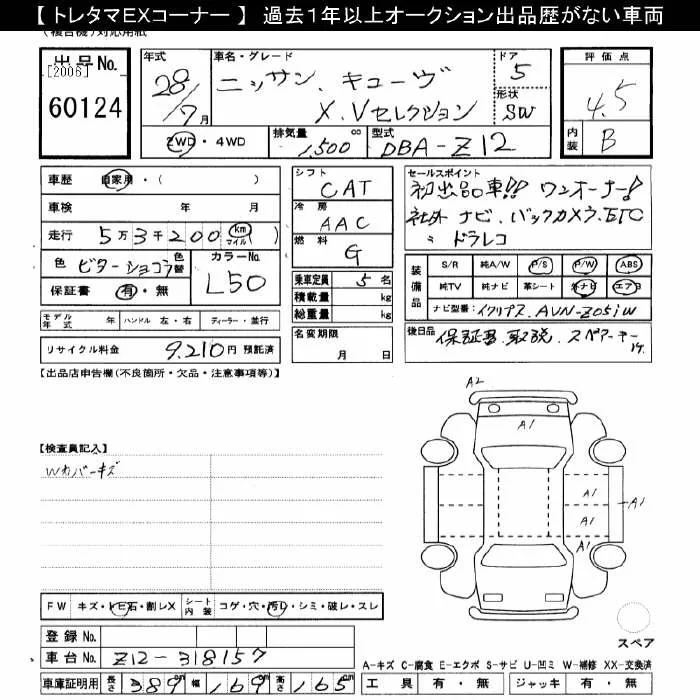 【 トレタマEXコーナー 】 過去１年以上オークション出品歴がない車両
(複合機)対応用紙
出品No.
[2006]
60124
年式
28/7月
車名・グレード
ニッサン、キューヴ
X.Vセレクション
ドア
5
形状
SW
2WD・4WD
排気量
1,500 cc
型式
DBA-Z12
評価点
4.5
内装
B
車歴 自家用・( )
車検 年 月
走行 5万3千200 km マイル )
色 ビターショコラ 色替
カラーNo.
L50
保証書 有・無
モデル年式 年 ハンドル 左・右 ディーラー・並行
リサイクル料金 9,210円 預託済
シフト
CAT
冷房
AAC
燃料
G
乗車定員 5名
積載量 kg
総重量 kg
名変期限
月 日
セールスポイント
初出品車!! ワンオーナー!
社外ナビ、バックカメラ、ETC
〃 ドラレコ
装備品
S/R 純A/W P/S P/W ABS
純TV 純ナビ 革シート 外ナビ エアB
ナビ型番: イクリプス. AVN-Z05iW
後日品 保証書.取説.スペアーキー1ヶ
【出品店申告欄(不良箇所・欠品・注意事項等)】
【検査員記入】
Wカバーキズ
A2
A1
A1
A1
A1
A1
FW キズ・トビ石・割レX シート内装 コゲ・穴・汚レ・シミ・破レ・スレ
スペア
登録No.
車台No. Z12-318157
A-キズ C-腐食 E-エクボ S-サビ U-凹ミ W-補修 XX-交換済
車庫証明用 長さ 389cm 幅 169cm 高さ 165cm
工具 有・無 ジャッキ 有・無